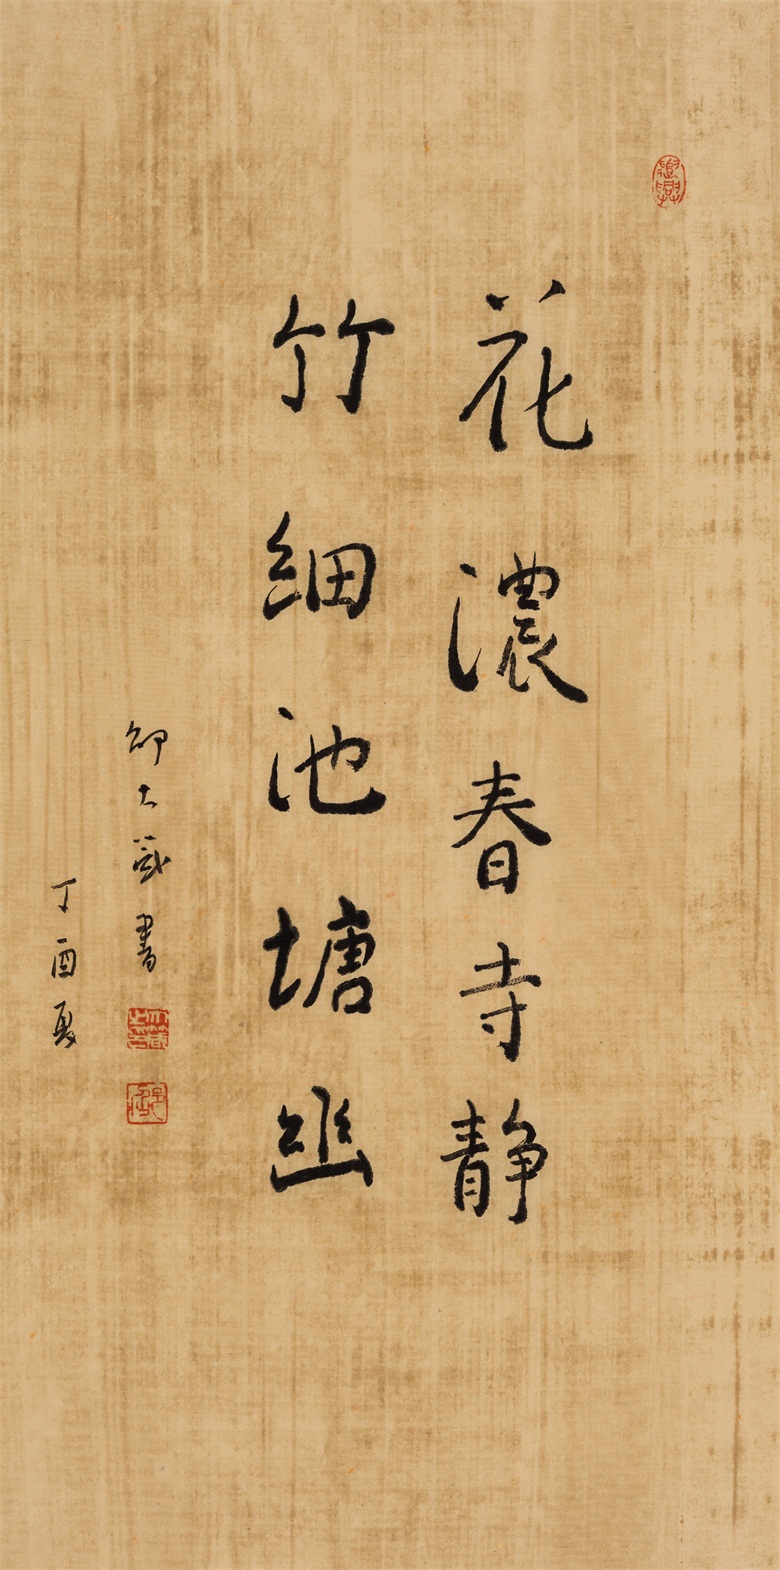 花濃春寺静
竹細池塘幽
邵大箴書
丁酉夏